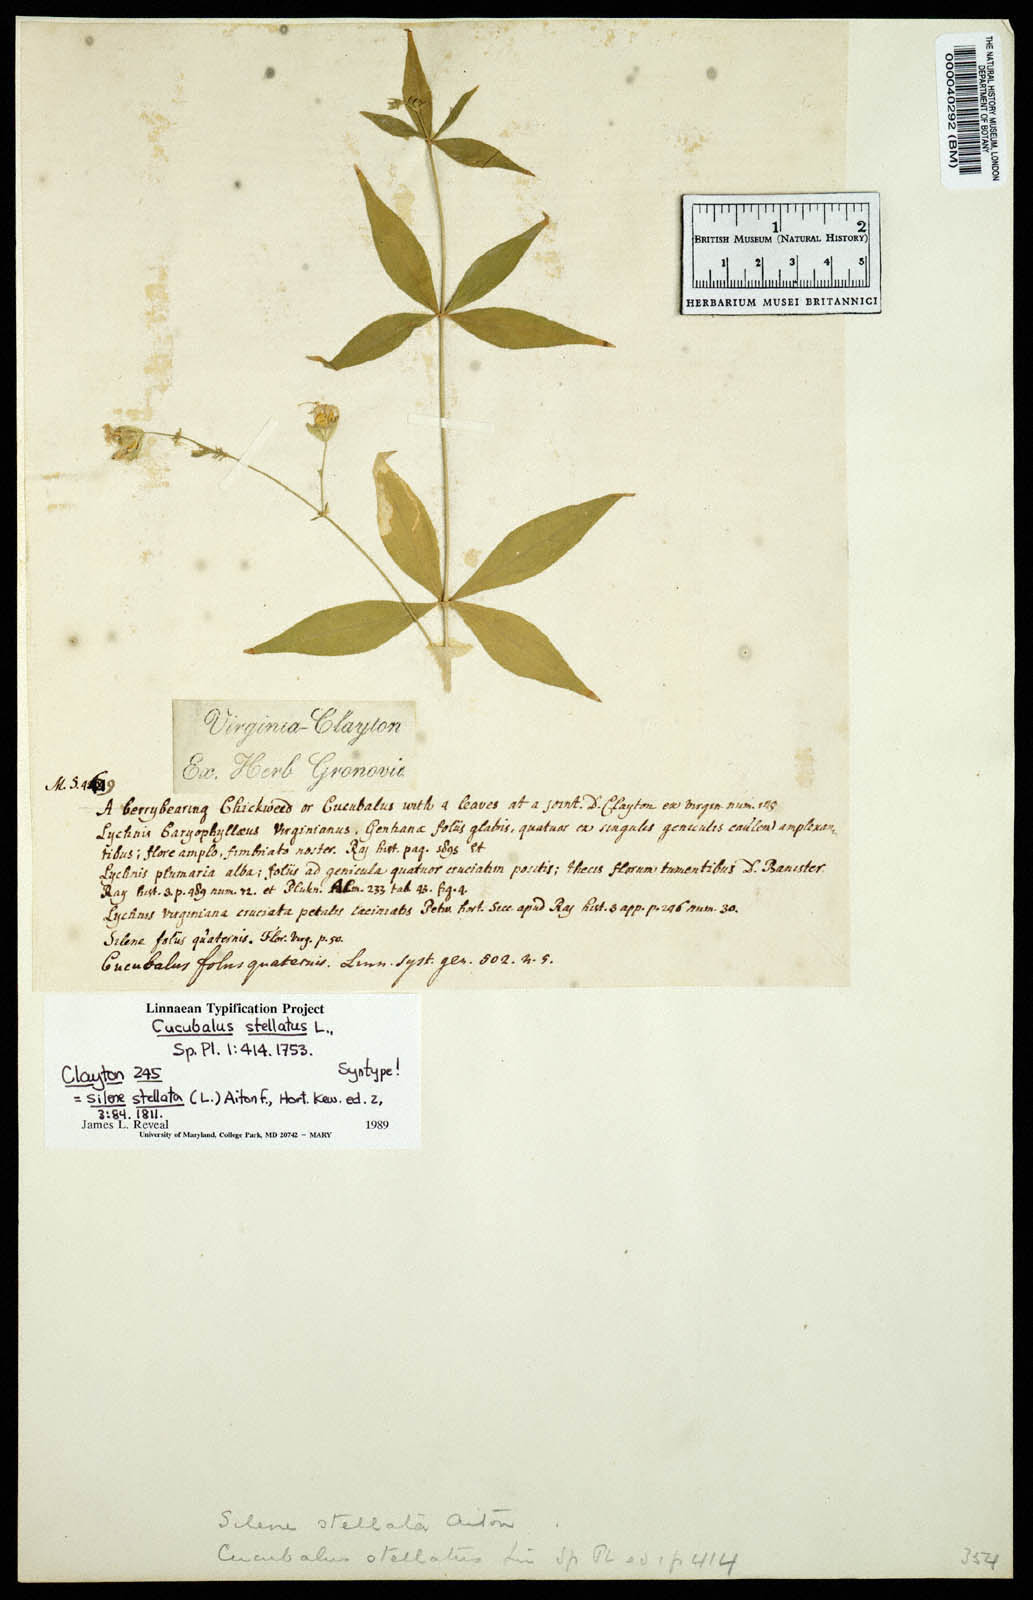 THE NATURAL HISTORY MUSEUM, LONDON
DEPARTMENT OF BOTANY
000040292 (BM)
1 2
BRITISH MUSEUM (NATURAL HISTORY)
1 2 3 4 5
HERBARIUM MUSEI BRITANNICI
Virginia-Clayton
Ex. Herb Gronovii
M. S.
A berrybearing Chickweed or Cucubalus with 4 leaves at a joint. D. Clayton ex Virgin. num.
Lychnis Caryophyllæus Virginianus, Gentianæ foliis glabis, quatuor ex singulis geniculis caulem amplexan-
tibus; flore amplo, fimbriato noster. Raj hist. pag. 1895 et
Lychnis plumaria alba; foliis ad genicula quatuor cruciatim positis; thecis florum tumentibus D. Banister
Ray hist. 3. p. 489 num. 12. et Plukn. Alm. 233 tab. 43. fig. 4.
Lychnis Virginiana cruciata petalis laciniatis Petiv. hort. Sicc. apud Raj hist. 3 app. p. 246 num. 30.
Silene foliis quaternis. Flor. Virg. p. 50.
Cucubalus foliis quaternis. Linn. Syst. gen. 502. n. 5.
Linnaean Typification Project
Cucubalus stellatus L.,
Sp. Pl. 1:414. 1753.
Clayton 245 Syntype!
= Silene stellata (L.) Aiton f., Hort. Kew. ed. 2,
3:84. 1811.
James L. Reveal 1989
University of Maryland, College Park, MD 20742 – MARY
Silene stellata Aiton
Cucubalus stellatus Lin Sp. Pl. ed 1 p 414
354